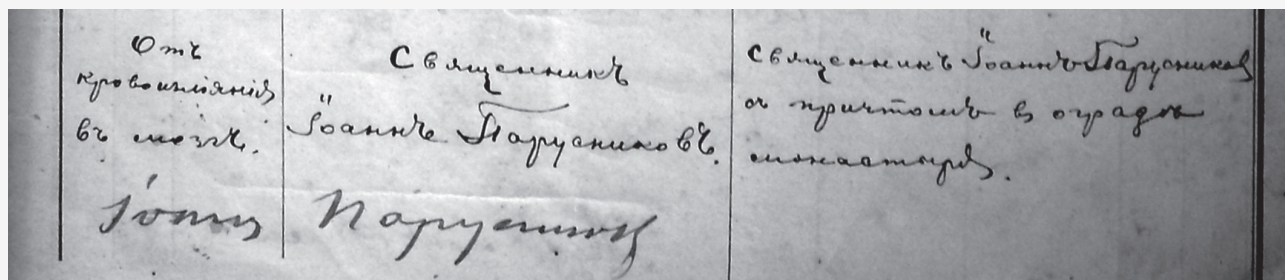 Отъ
кровоизліянія
въ мозгъ.
Священникъ
Іоаннъ Парусниковъ.
Священникъ Іоаннъ Парусниковъ
съ причтомъ въ оградѣ
монастыря.
Іоаннъ Парусниковъ